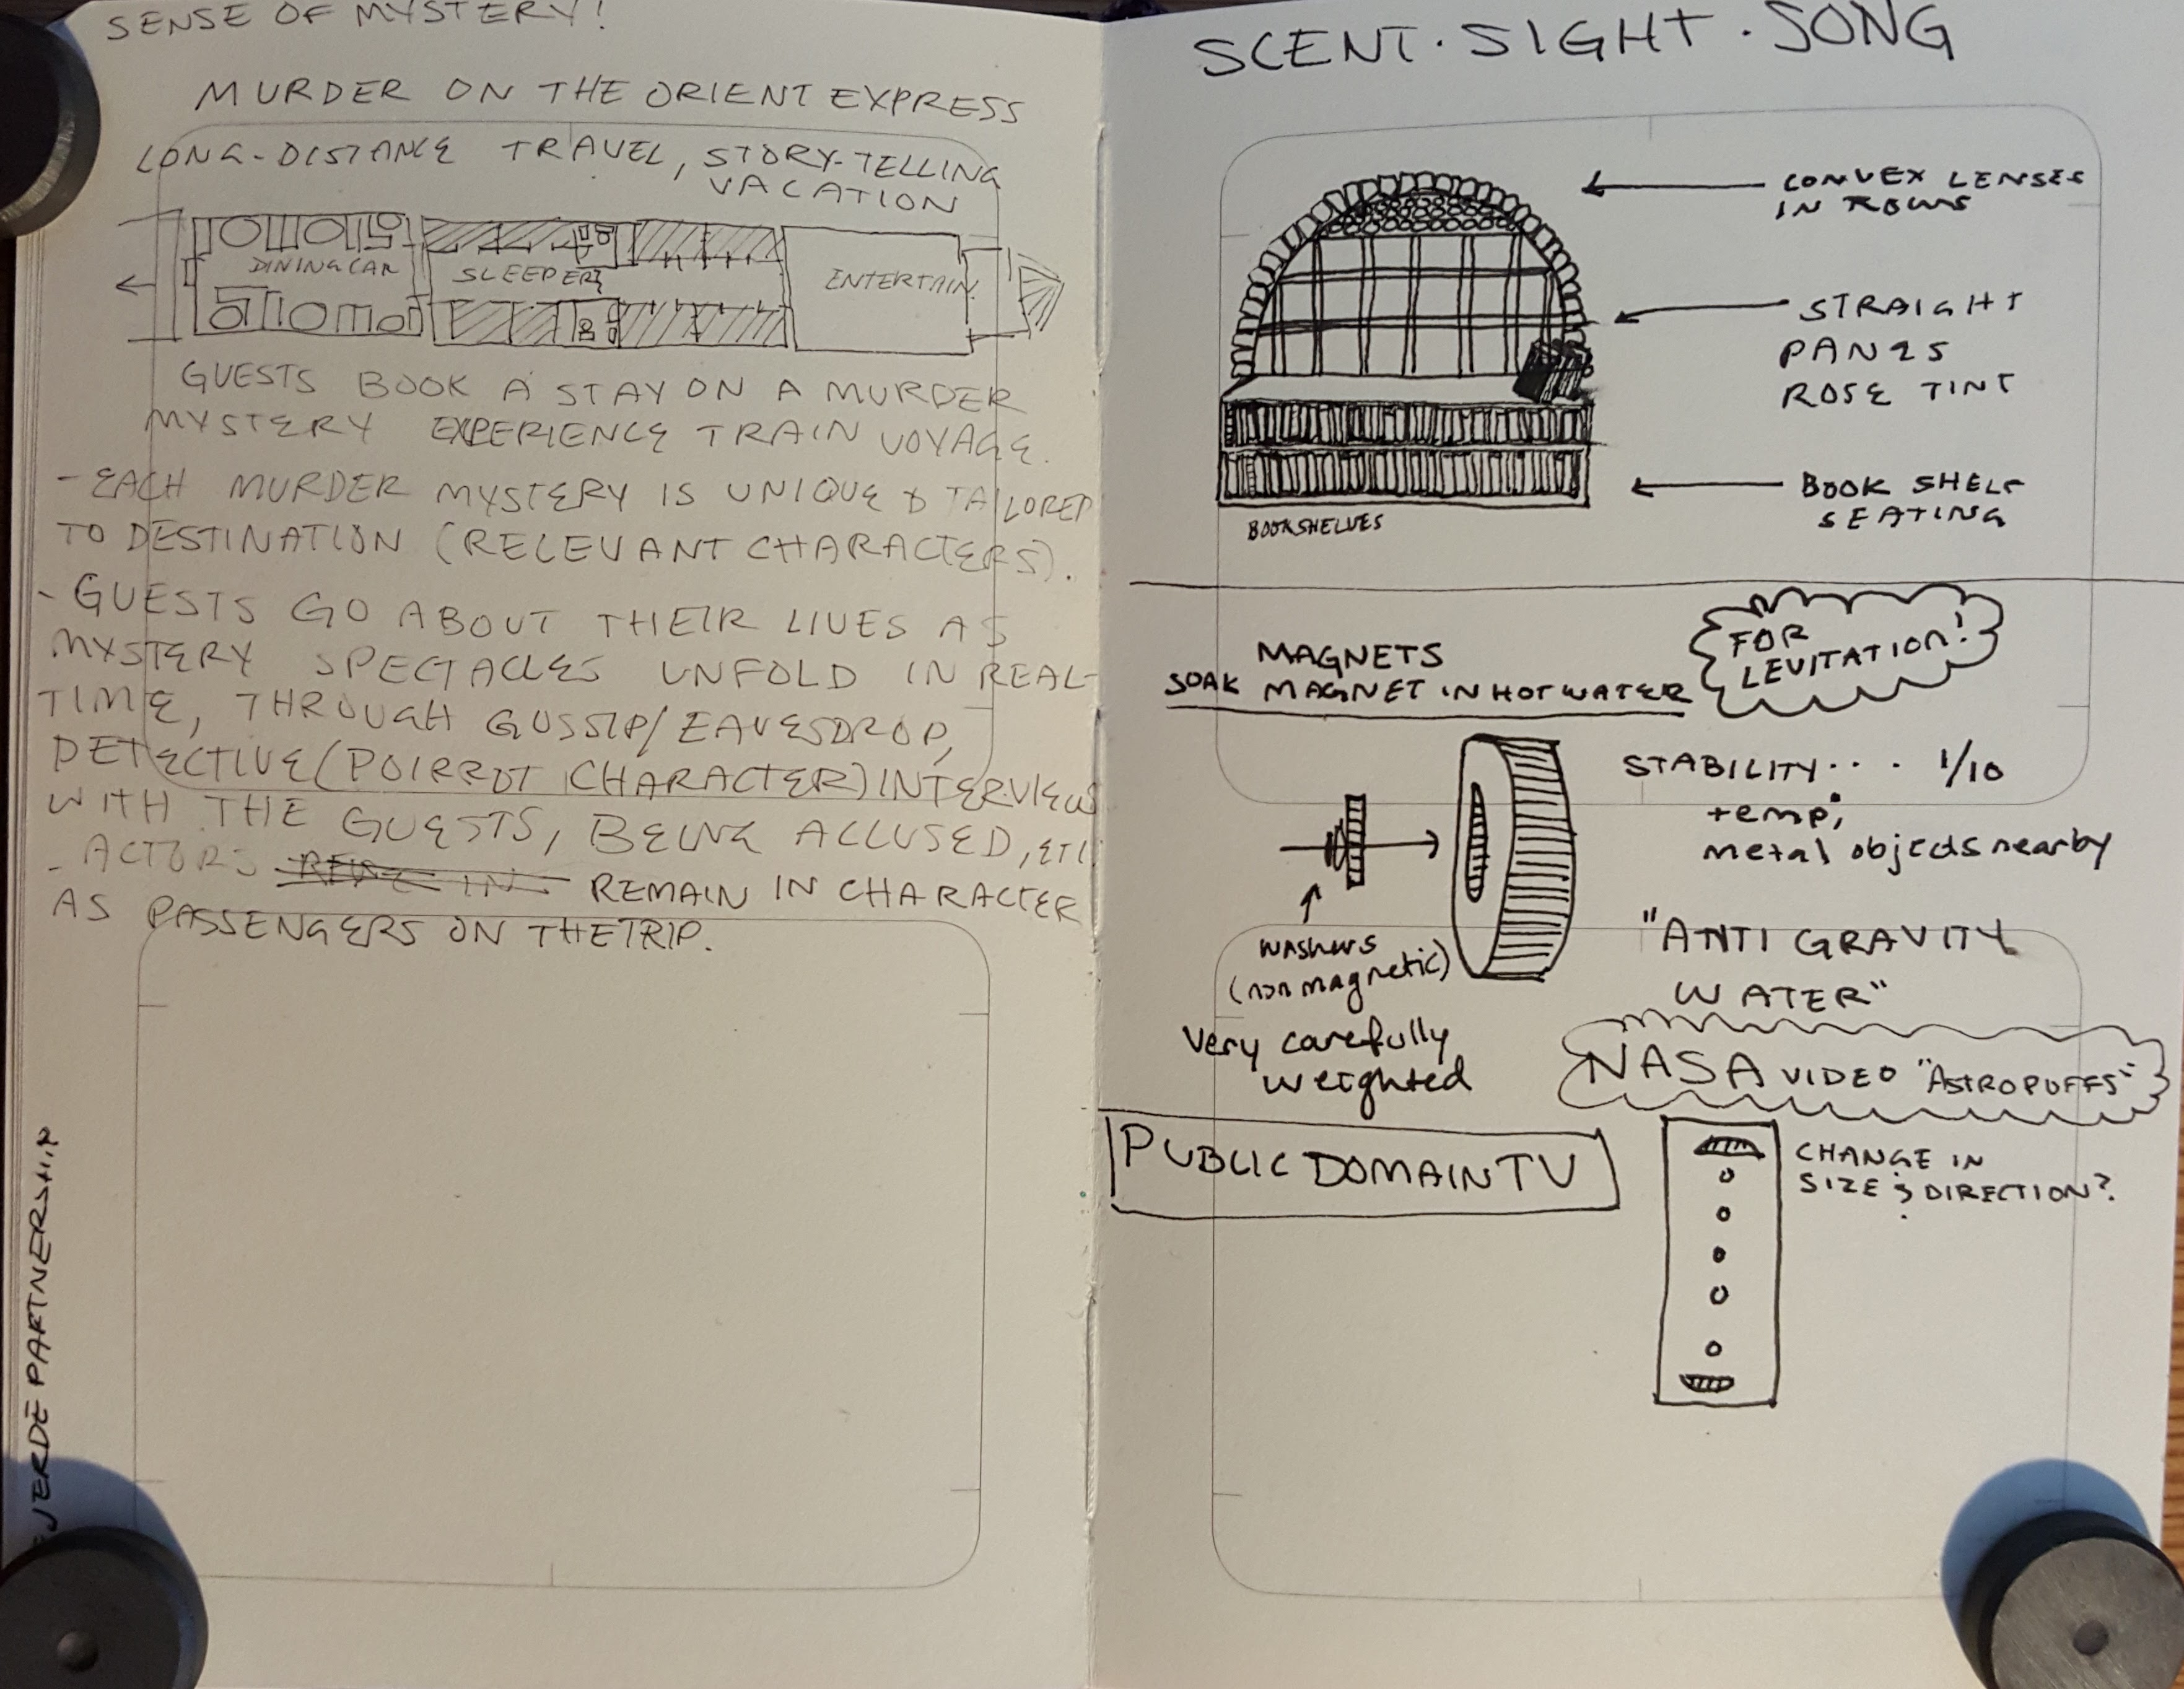 SENSE OF MYSTERY!
MURDER ON THE ORIENT EXPRESS
LONG-DISTANCE TRAVEL, STORY-TELLING
VACATION
DINING CAR
SLEEPER
ENTERTAIN
GUESTS BOOK A STAY ON A MURDER
MYSTERY EXPERIENCE TRAIN VOYAGE.
- EACH MURDER MYSTERY IS UNIQUE & TAILORED
TO DESTINATION (RELEVANT CHARACTERS).
- GUESTS GO ABOUT THEIR LIVES AS
MYSTERY SPECTACLES UNFOLD IN REAL-
TIME, THROUGH GOSSIP/EAVESDROP,
DETECTIVE (POIRROT CHARACTER) INTERVIEWS
WITH THE GUESTS, BEING ACCUSED, ETC
- ACTORS REMAIN IN CHARACTER
AS PASSENGERS ON THE TRIP.
JERDE PARTNERSHIP
SCENT · SIGHT · SONG
CONVEX LENSES
IN ROWS
STRAIGHT
PANES
ROSE TINT
BOOK SHELF
SEATING
BOOKSHELVES
MAGNETS
SOAK MAGNET IN HOT WATER
FOR
LEVITATION!
STABILITY... 1/10
temp,
metal objects nearby
washers
(non magnetic)
Very carefully
weighted
"ANTI GRAVITY
WATER"
NASA VIDEO "ASTROPUFFS"
PUBLIC DOMAIN TV
CHANGE IN
SIZE & DIRECTION?